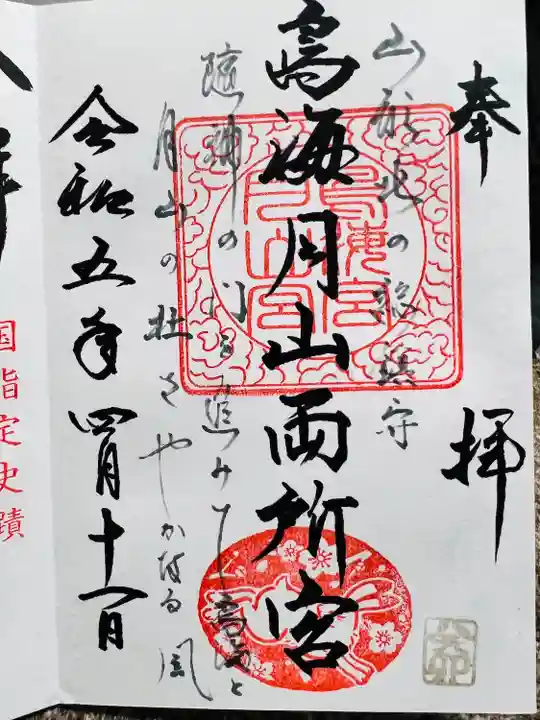 奉拝
山形北の総鎮守
鳥海月山両所宮
随神の門を進みて鳥海と
月山の杜さやかなる風
令和五年四月十一日
国指定史蹟